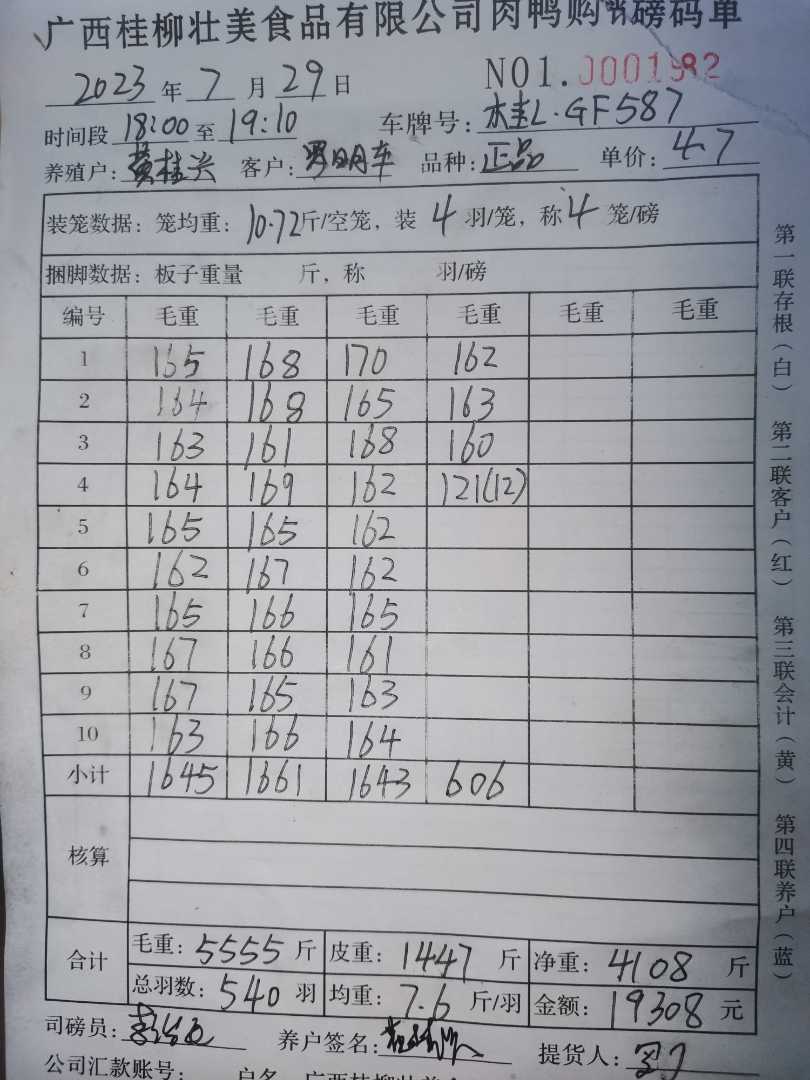 广西桂柳壮美食品有限公司肉鸭购销磅码单
2023 年 7 月 29 日 NO1. 0001982
时间段 18:00 至 19:10 车牌号: 桂L·GF587
养殖户: 黄桂兴 客户: 品种: 正品 单价: 4.7
装笼数据: 笼均重: 10.72 斤/空笼, 装 4 羽/笼, 称 4 笼/磅
捆脚数据: 板子重量 斤, 称 羽/磅
编号 毛重 毛重 毛重 毛重 毛重 毛重
1 165 168 170 162
2 164 168 165 163
3 163 161 168 160
4 164 169 162 121(12)
5 165 165 162
6 162 167 162
7 165 166 165
8 167 166 161
9 167 165 163
10 163 166 164
小计 1645 1661 1643 606
核算
合计 毛重: 5555 斤 皮重: 1447 斤 净重: 4108 斤
总羽数: 540 羽 均重: 7.6 斤/羽 金额: 19308 元
司磅员: 养户签名: 提货人:
公司汇款账号: 户名
第一联存根(白) 第二联客户(红) 第三联会计(黄) 第四联养户(蓝)